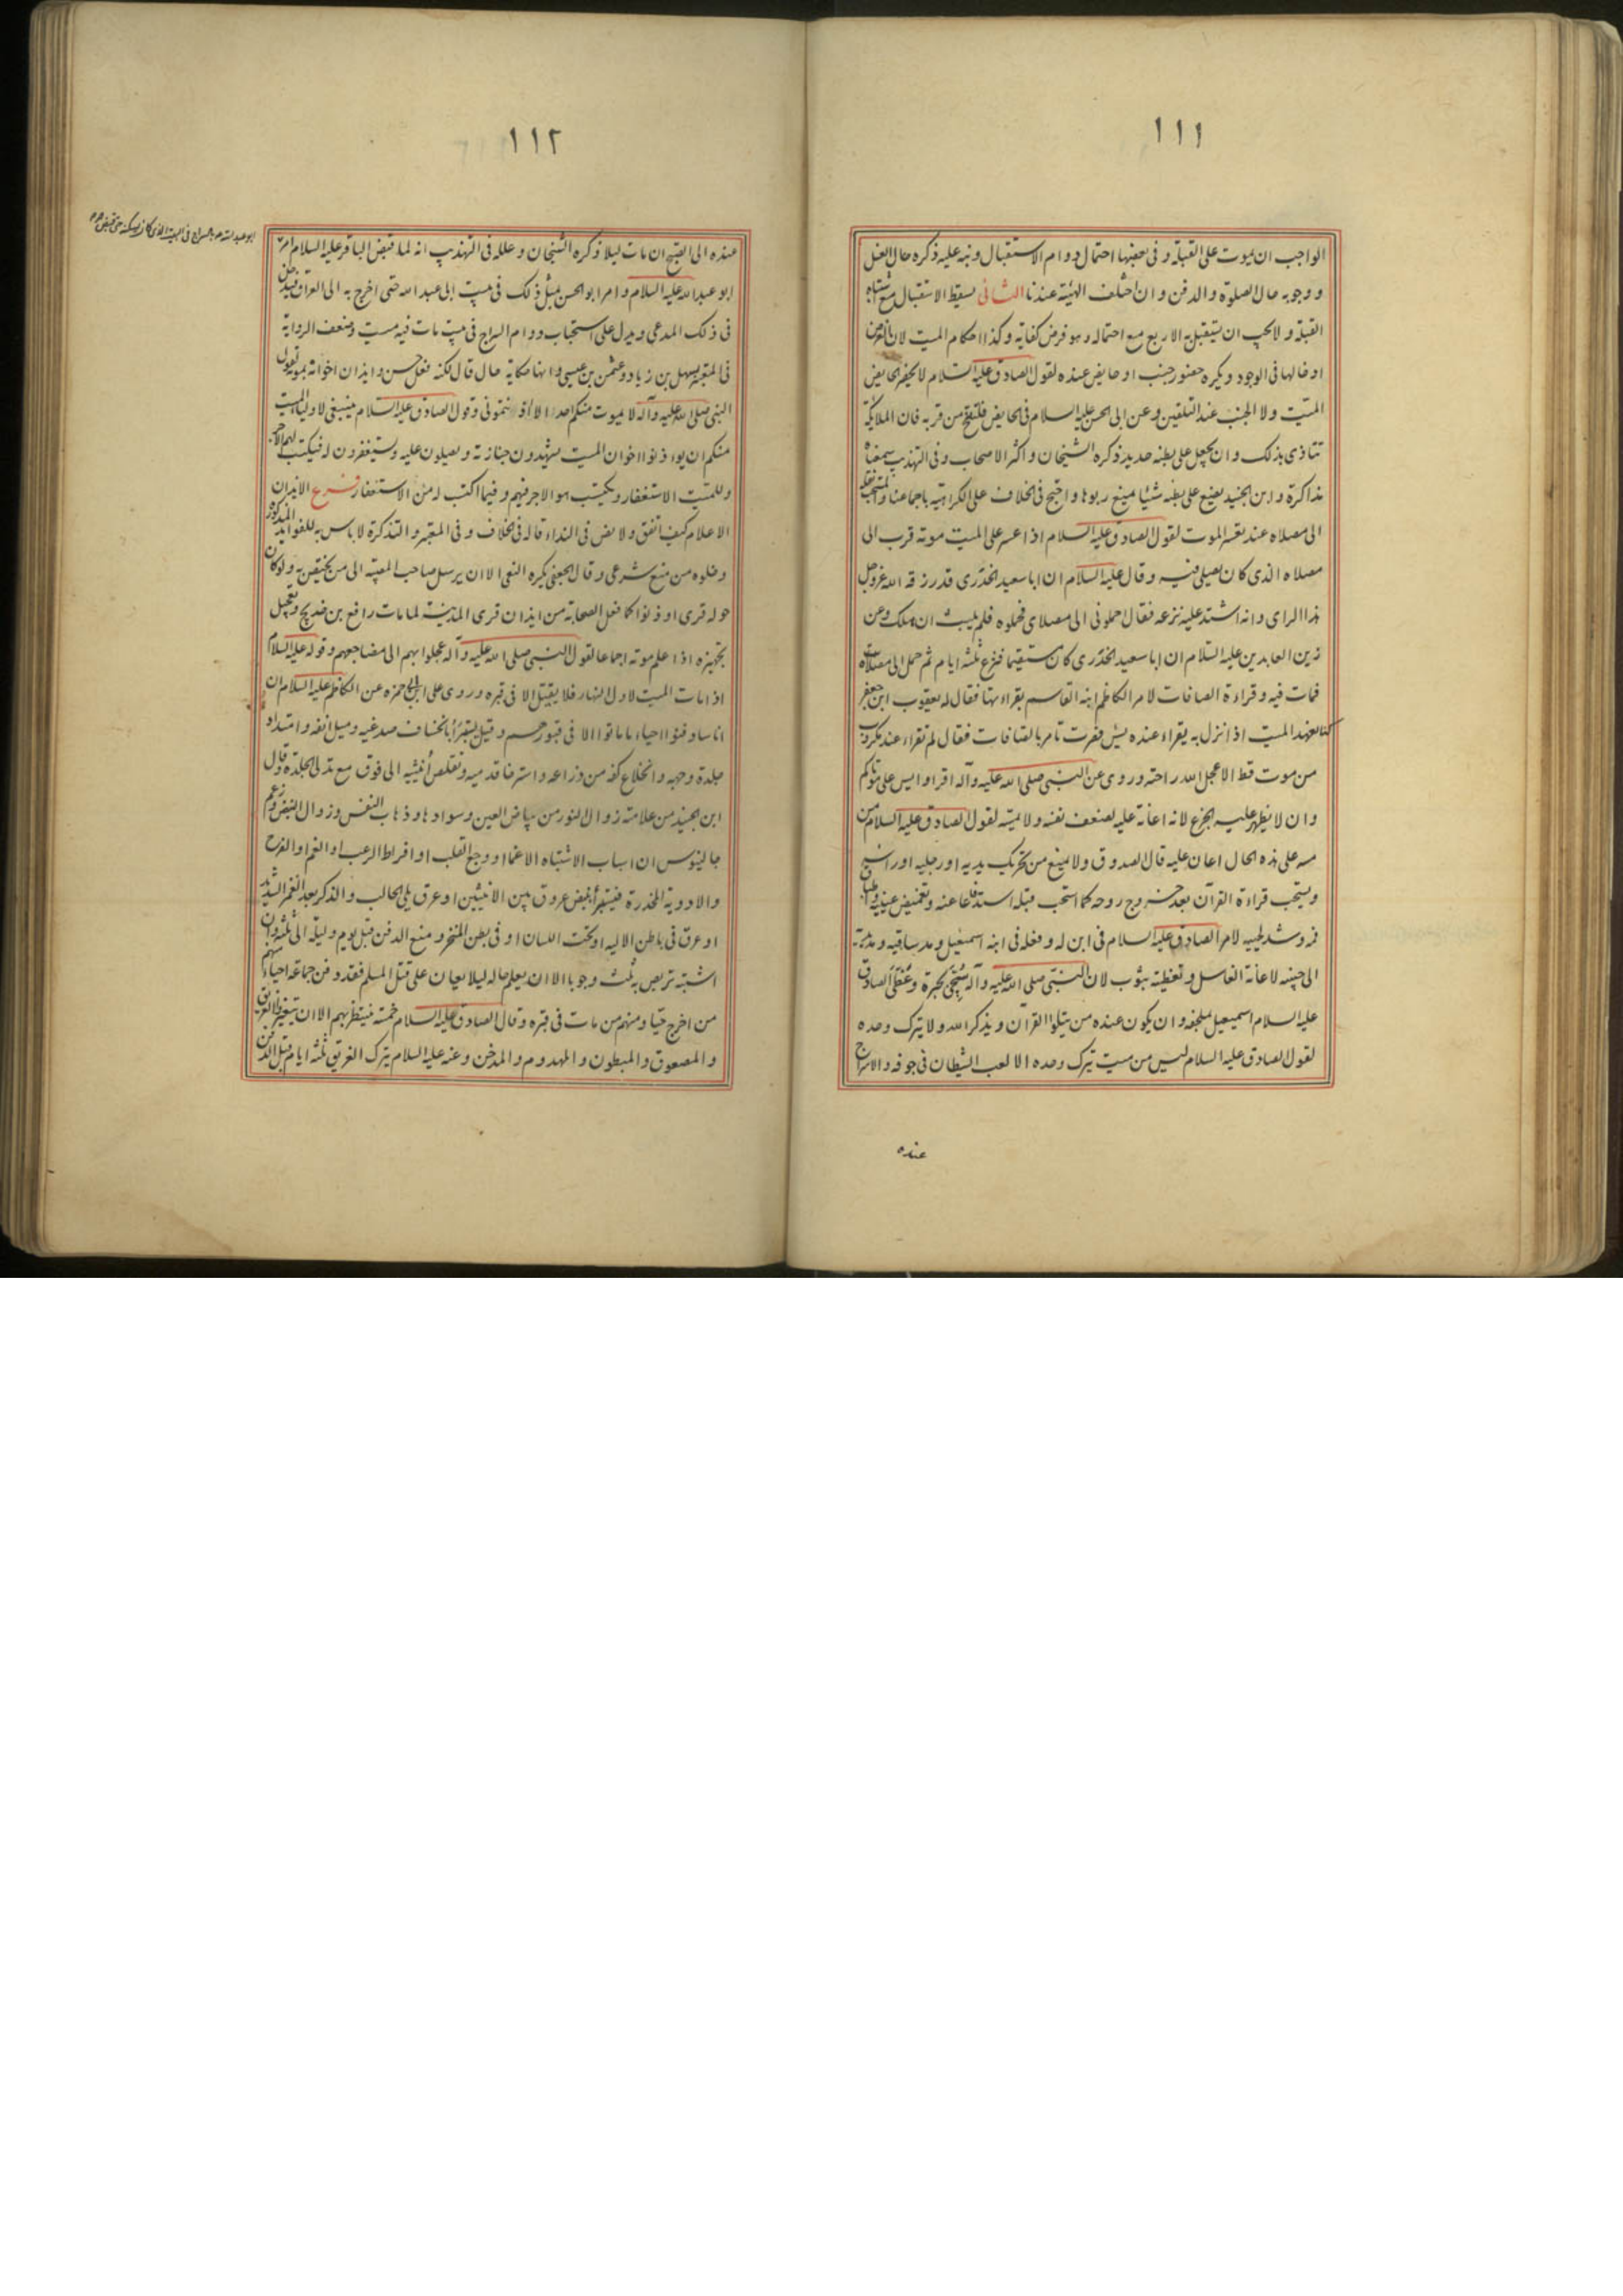 ١١١
الواجب ان يموت على القبلة وفى بعضها احتمال دوام الاستقبال ونبه عليه ذكره حال الغسل
ووجوبه حال الصلوة والدفن وان اختلف الهيئة عندنا الثانى يسقط الاستقبال مع اشتباه
القبلة ولا يجب ان يستقبل به الاربع مع احتماله وهو فرض كفاية وكذا احكام الميت لان الغرض
ادخالها فى الوجود ويكره حضور جنب او حايض عنده لقول الصادق عليه السلام لا يحضر الحايض
الميّت ولا الجنب عند التلقين وعن ابى الحسن عليه السلام فى الحايض فلتنح من قربه فان الملايكة
تتاذى بذلك وان يجعل على بطنه حديد ذكره الشيخان واكثر الاصحاب وفى التهذيب سمعناه
مذاكرة وابن الجنيد يضع على بطنه شيئا يمنع ربوها واحتج فى الخلاف على الكراهية باجماعنا ويستحب نقله
الى مصلاه عند تعسر الموت لقول الصادق عليه السلام اذا عسر على الميت موته قرب الى
مصلاه الذى كان يصلى فيه وقال عليه السلام ان ابا سعيد الخدرى قد رزقه الله عزوجل
هذا الراى وانه اشتد عليه نزعه فقال احملونى الى مصلاى فحملوه فلم يلبث ان هلك وعن
زين العابدين عليه السلام ان ابا سعيد الخدرى كان مستقيما فنزع ثلثة ايام ثم حمل الى مصلاه
فمات فيه وقراءة الصافات لامر الكاظم ابنه القاسم بقراءتها فقال له يعقوب ابن جعفر
كنا نعهد الميت اذا نزل به يقراء عنده يس فصرت تامر بالصافات فقال لم تقراء عند مكروب
من موت قط الا عجل الله راحته وروى عن النبى صلى الله عليه وآله اقراوا يس على موتاكم
وان لا يظهر عليه الجزع لانه اعانة عليه لضعف نفسه ولا يمسه لقول الصادق عليه السلام من
مسه على هذه الحال اعان عليه قال الصدوق ولا يمنع من تحريك يديه او رجليه او راسه
ويستحب قراءة القرآن بعد خروج روحه كما استحب قبله استدفاعا عنه وتغميض عينيه وطباق
فمه وشد لحييه لامر الصادق عليه السلام فى ابن له وفعله فى ابنه اسمعيل ومد ساقيه ومد يديه
الى جنبيه لاعانة الغاسل وتغطيته بثوب لان النبى صلى الله عليه وآله سُجّى بحبرة وغَطّى الصادق
عليه السلام اسمعيل بملحفة وان يكون عنده من يتلوا القرآن ويذكر الله ولا يترك وحده
لقول الصادق عليه السلام ليس من ميت يترك وحده الا لعب الشيطان فى جوفه والاسراج
عنده
١١٢
عنده الى الصبح ان مات ليلا ذكره الشيخان وعلله فى التهذيب انه لما قبض الباقر عليه السلام امر
ابو عبد الله عليه السلام وامر ابو الحسن بمثل ذلك فى بيت ابى عبد الله حتى اخرج به الى العراق فيدخل
فى ذلك المدعى ويدل على استحباب دوام السراج فى بيت مات فيه ميت وضعف الرواية
فى المعتبر بسهل بن زياد وعثمن بن عيسى وانها حكاية حال قال لكنه فعل حسن وايذان اخوانه بموته لقول
النبى صلى الله عليه وآله لا يموت منكم احد الا اذنتمونى وقول الصادق عليه السلام ينبغى لاولياء الميت
منكم ان يوذنوا اخوان الميت يشهدون جنازته ويصلون عليه ويستغفرون له فيكتب لهم الاجر
وللميّت الاستغفار ويكتسب هو الاجر فيهم وفيما اكتسب له من الاستغفار فرع الايذان
الاعلام كيف اتفق ولا نص فى النداء قاله فى الخلاف وفى المعتبر والتذكرة لا باس به للفوايد المذكورة
وخلوه من منع شرعى وقال الجعفى يكره النعى الا ان يرسل صاحب المصيبة الى من يختص به ولو كان
حوله قرى اوذنوا كما فعل الصحابة من ايذان قرى المدينة لما مات رافع بن خديج وتعجيل
تجهيزه اذا علم موته اجماعا لقول النبى صلى الله عليه وآله عجلوا بهم الى مضاجعهم وقوله عليه السلام
اذا مات الميت لاول النهار فلا يقيل الا فى قبره وروى على بن ابى حمزه عن الكاظم عليه السلام ان
اناسا دفنوا احياء ما ماتوا الا فى قبورهم وقيل يستبرأ بانخساف صدغيه وميل انفه وامتداد
جلدة وجهه وانخلاع كفه من ذراعه واسترخاء قدميه وتقلص أنثييه الى فوق مع تدلى الجلدة وقال
ابن الجنيد من علامته زوال النور من بياض العين وسوادها وذهاب النفس وزوال النبض وزعم
جالينوس ان اسباب الاشتباه الاغماء او وجع القلب او افراط الرعب او الغم او الفرح
والادوية المخدرة فيستبرأ بنبض عروق بين الانثيين او عرق يلى الحالب والذكر بعد الغمز الشديد
او عرق فى باطن الالية او تحت اللسان او فى بطن المنخر ومنع الدفن قبل يوم وليلة الى ثلثة وان
اشتبه تربص به ثلث وجوبا الا ان يعلم حاله ليلا يعان على قتل المسلم فقد دفن جماعة احياء منهم
من اخرج حيّا ومنهم من مات فى قبره وقال الصادق عليه السلام خمسة ينتظر بهم الا ان يتغيروا الغرق
والمصعوق والمبطون والمهدوم والمدخن وعنه عليه السلام يترك الغريق ثلثه ايام قبل الدفن